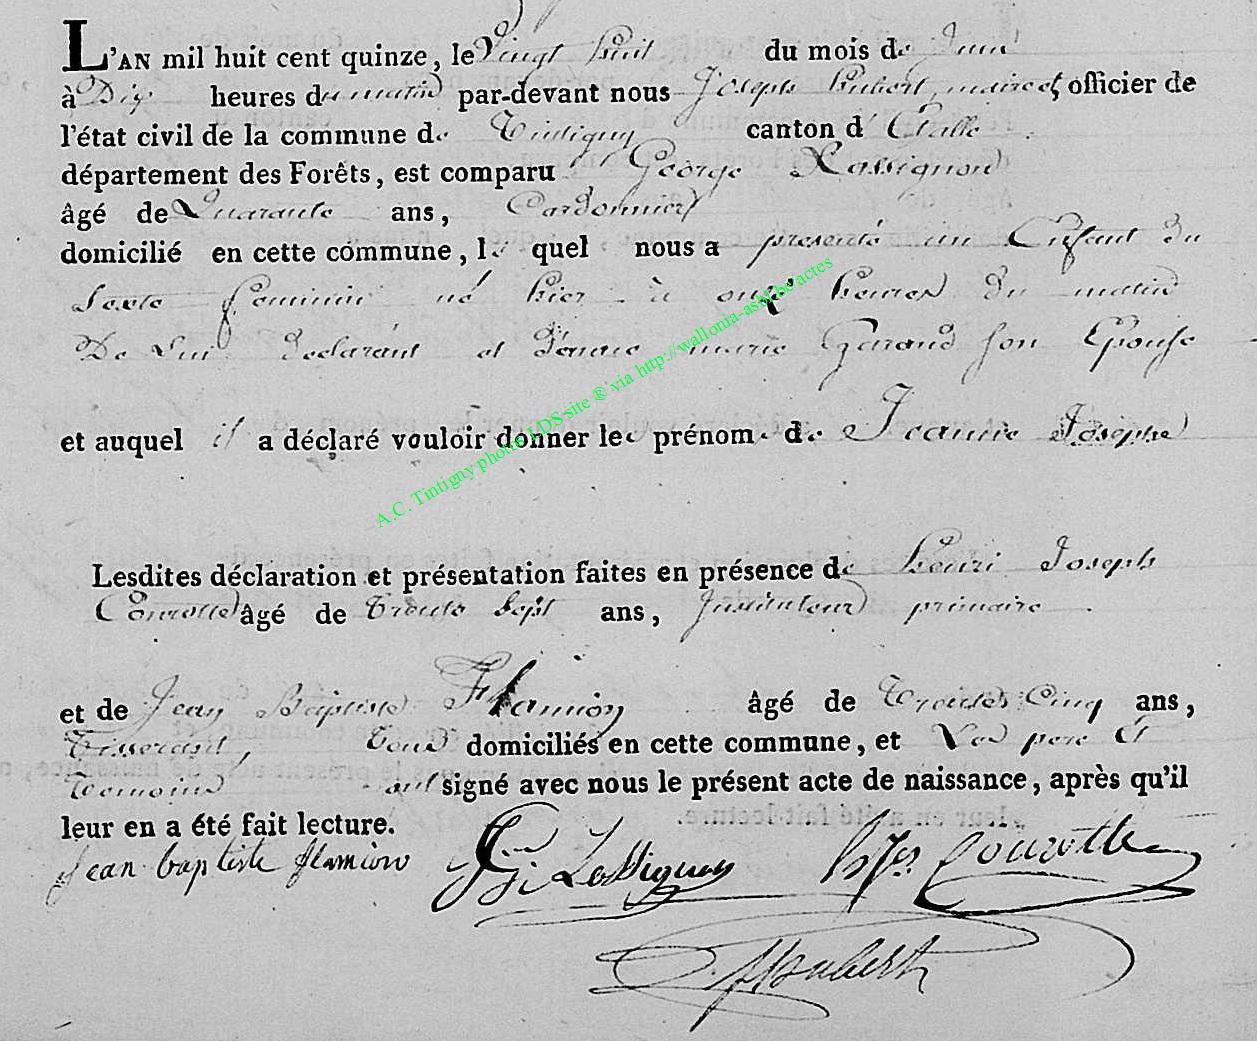 L'AN mil huit cent quinze, le Vingt huit du mois de Juin
à Dix heures du matin par-devant nous Joseph hubert, maire et officier de
l'état civil de la commune de Tintigny canton d'Etalle
département des Forêts, est comparu George Lassignon
âgé de Quarante ans, Cordonnier
domicilié en cette commune, le quel nous a presenté un Enfant du
Sexe feminin né hier à onze heures du matin
De Lui declarant et marie son Epouse
et auquel il a déclaré vouloir donner le prénom de Jeanne Josephe
Lesdites déclaration et présentation faites en présence de henri Joseph
âgé de trente Sept ans, Instituteur primaire
et de Jean Baptiste Flamion âgé de trente Cinq ans,
Tisserand, tous domiciliés en cette commune, et Les pere et
temoins ont signé avec nous le présent acte de naissance, après qu'il
leur en a été fait lecture.
Jean baptiste flamion
hubert
A.C. Tintigny photos LDS site ® via http://wallonia-asbl.be/actes